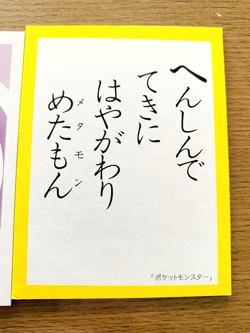 へんしんで
てきに
はやがわり
めたもん
メタモン
「ポケットモンスター」